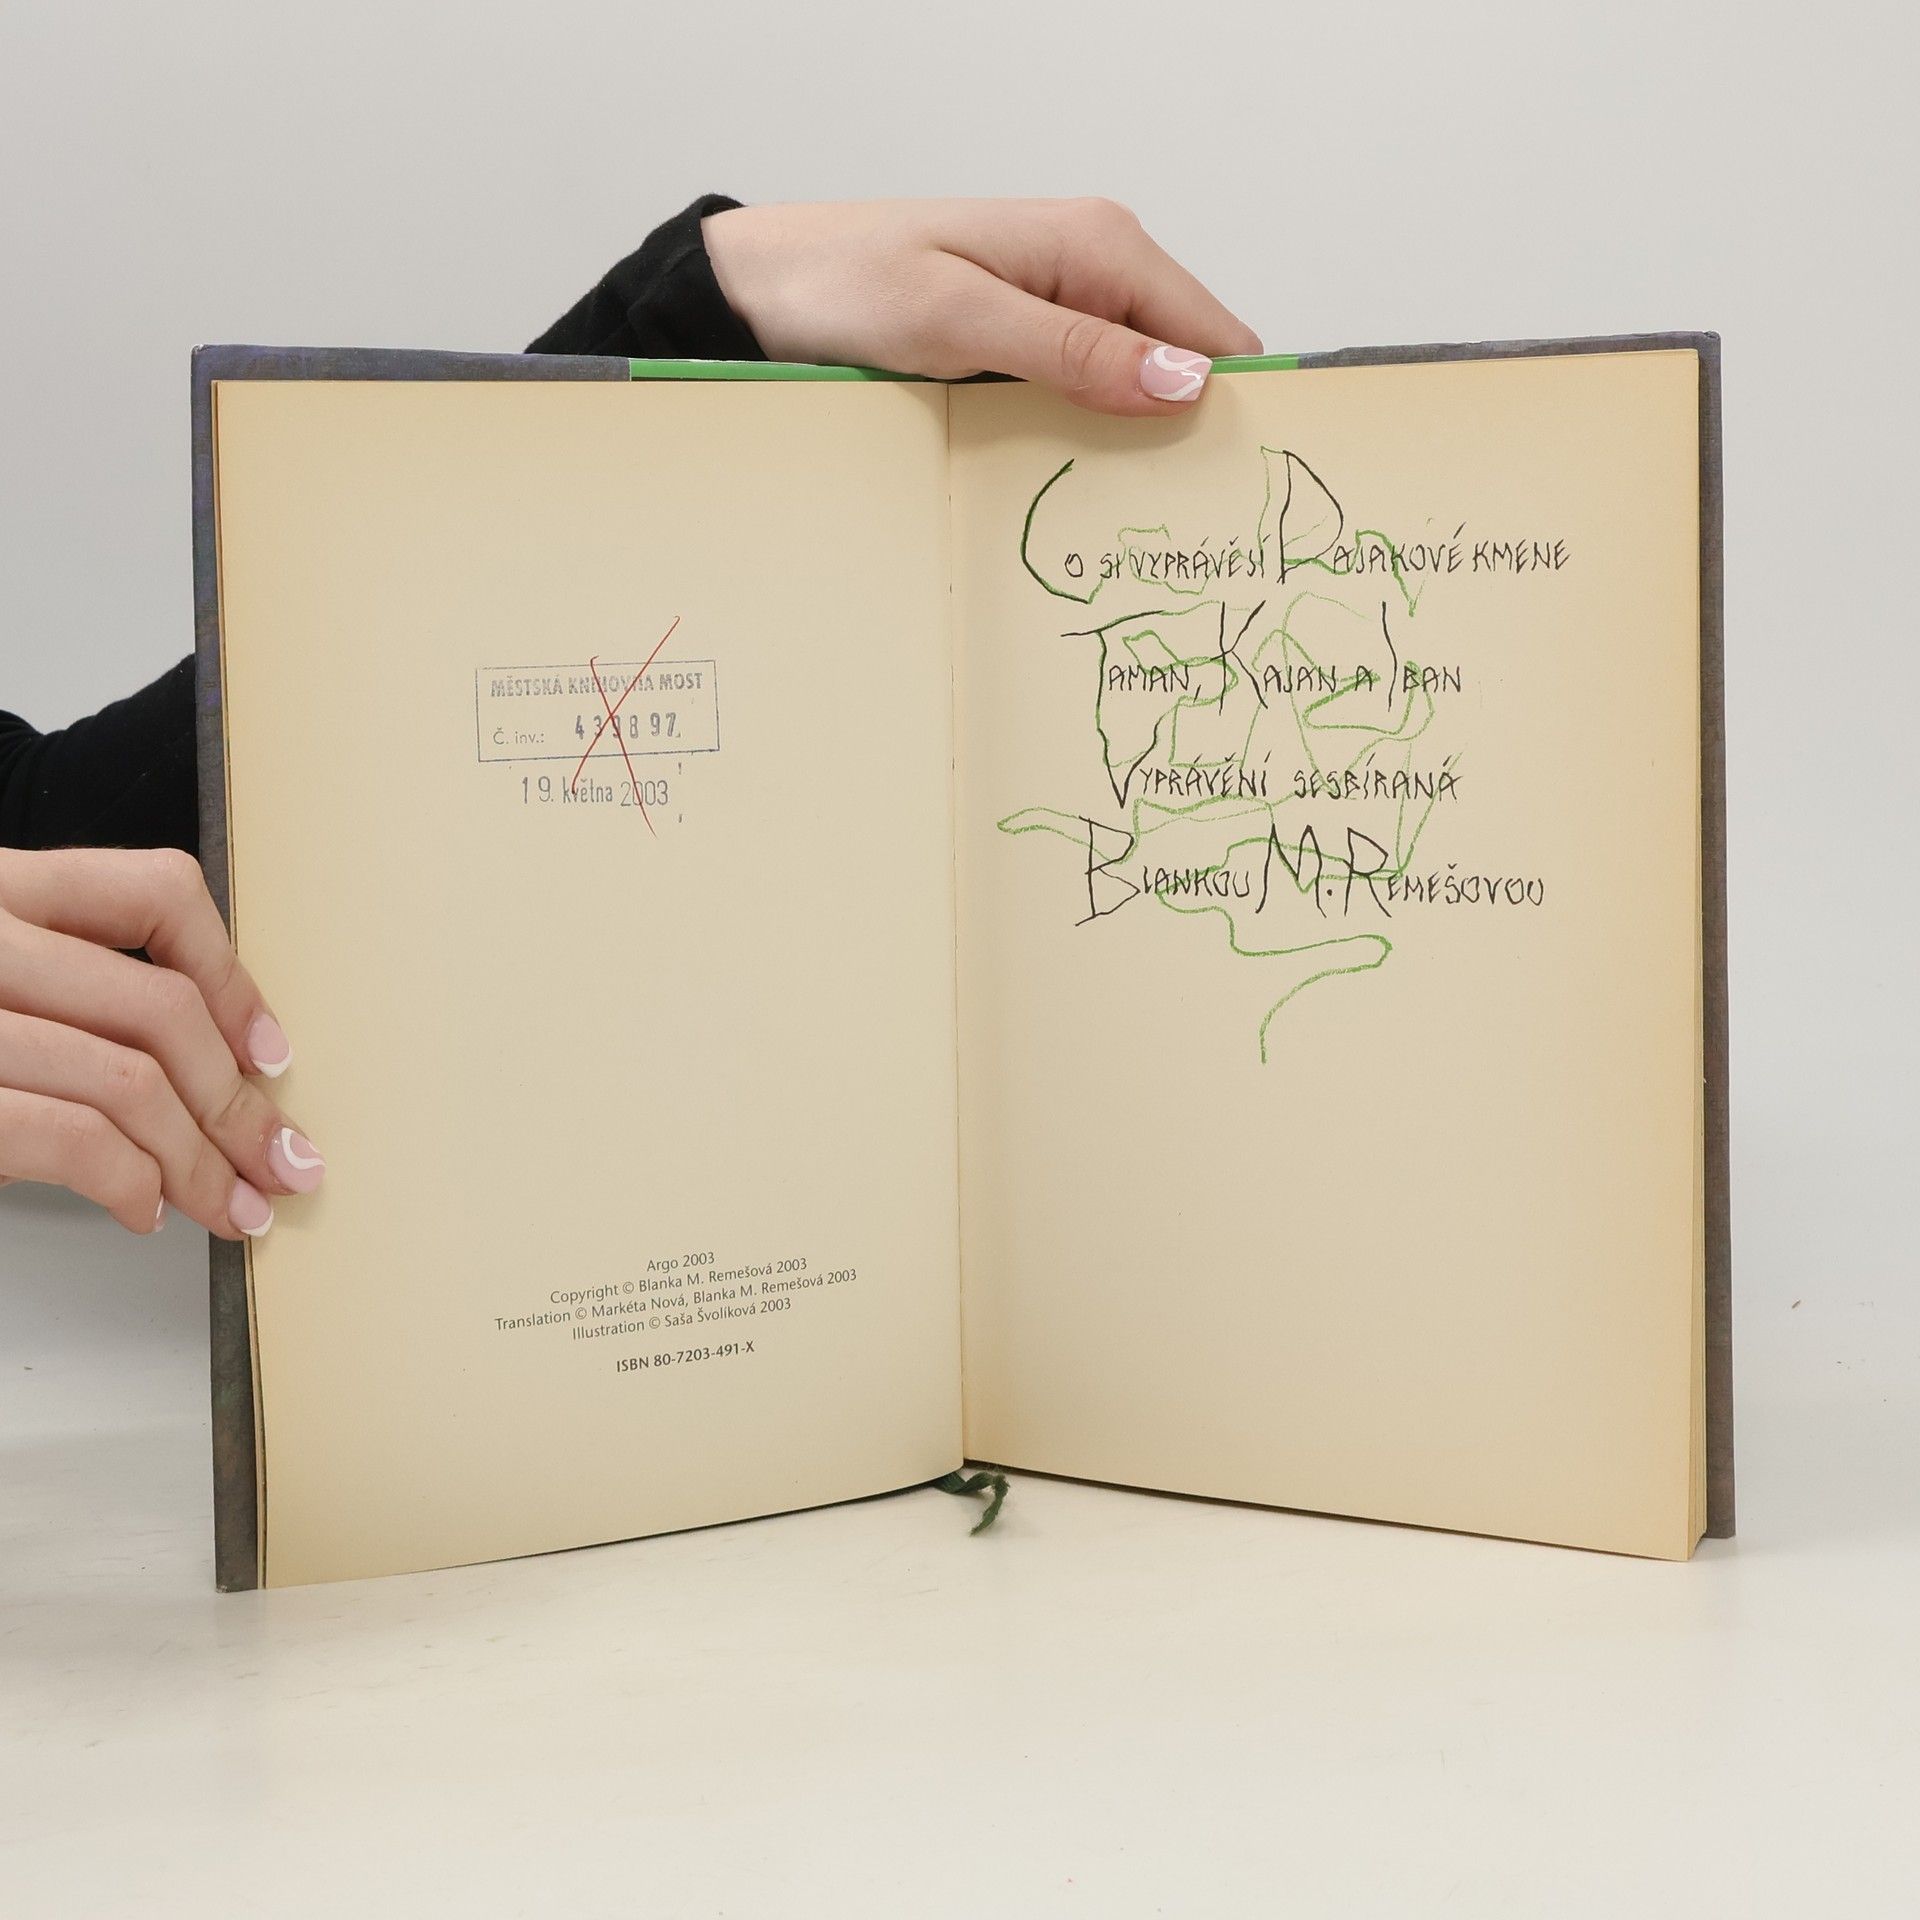 MĚSTSKÁ KNIHOVNA MOST
Č. inv.: 439897
19. května 2003
Argo 2003
Copyright © Blanka M. Remešová 2003
Translation © Markéta Nová, Blanka M. Remešová 2003
Illustration © Saša Švolíková 2003
ISBN 80-7203-491-X
CO SI VYPRÁVĚJÍ DAJAKOVÉ KMENE
TAMAN, KAJAN A IBAN
VYPRÁVĚNÍ SESBÍRANÁ
BLANKOU M. REMEŠOVOU